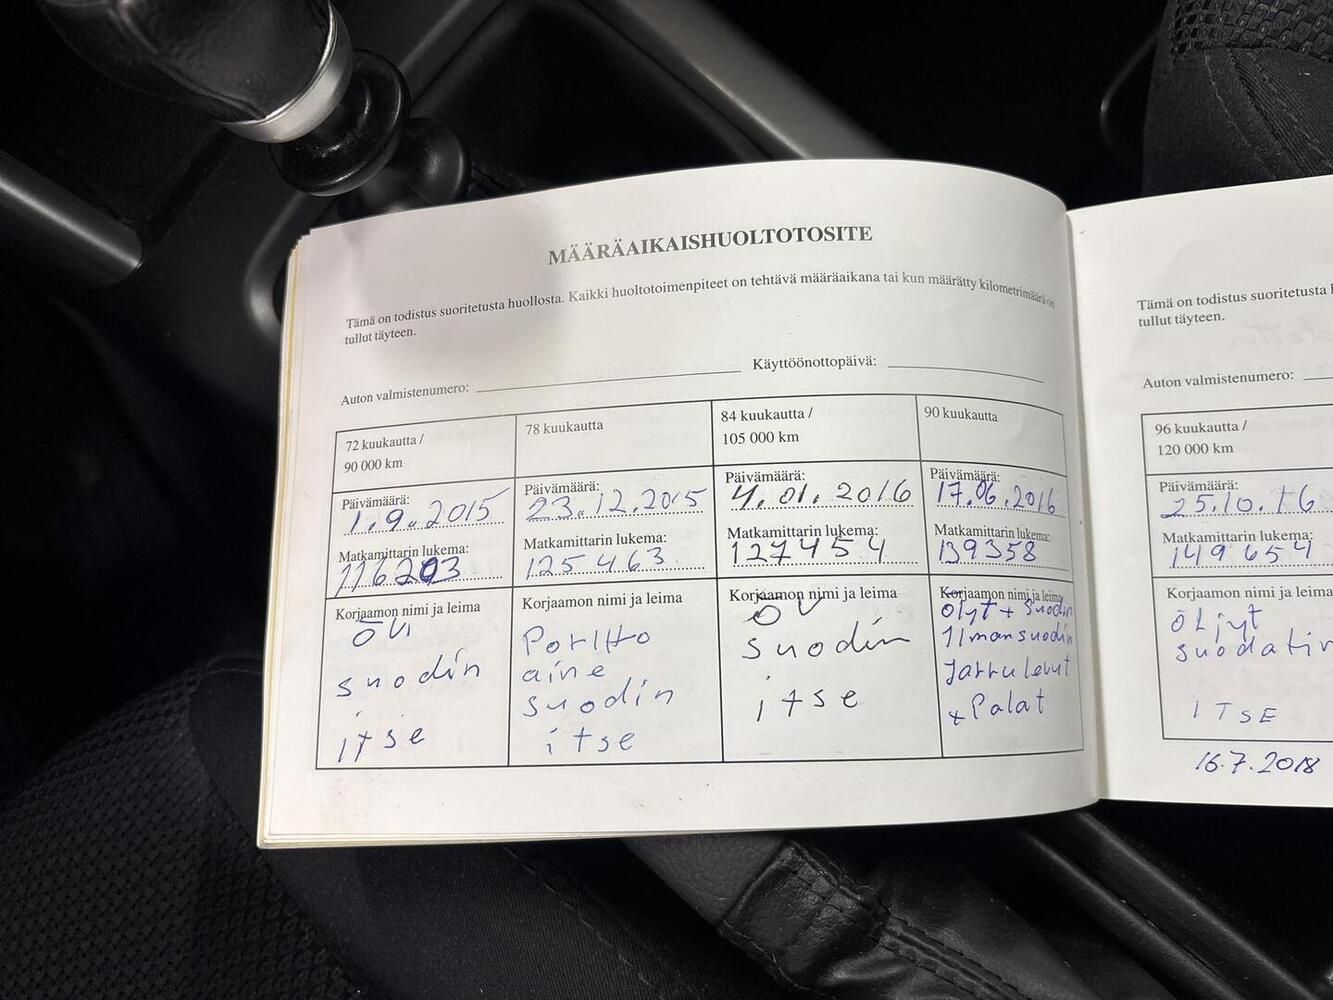 MÄÄRÄAIKAISHUOLTOTOSITE
Tämä on todistus suoritetusta huollosta. Kaikki huoltotoimenpiteet on tehtävä määräaikana tai kun määrätty kilometrimäärä on
tullut täyteen.
Auton valmistenumero:
Käyttöönottopäivä:
72 kuukautta /
90 000 km
Päivämäärä:
1.9.2015
Matkamittarin lukema:
116203
Korjaamon nimi ja leima
suodin
itse
78 kuukautta
Päivämäärä:
23.12.2015
Matkamittarin lukema:
125463
Korjaamon nimi ja leima
Poltto
aine
suodin
itse
84 kuukautta /
105 000 km
Päivämäärä:
4.01.2016
Matkamittarin lukema:
127454
Korjaamon nimi ja leima
suodin
itse
90 kuukautta
Päivämäärä:
17.06.2016
Matkamittarin lukema:
139358
Korjaamon nimi ja leima
ölyt + suodin
Ilmansuodin
Jarrulevut
+ Palat
Tämä on todistus suoritetusta
tullut täyteen.
Auton valmistenumero:
96 kuukautta /
120 000 km
Päivämäärä:
25.10.16
Matkamittarin lukema:
149654
Korjaamon nimi ja leima
öljyt
ITSE
16.7.2018